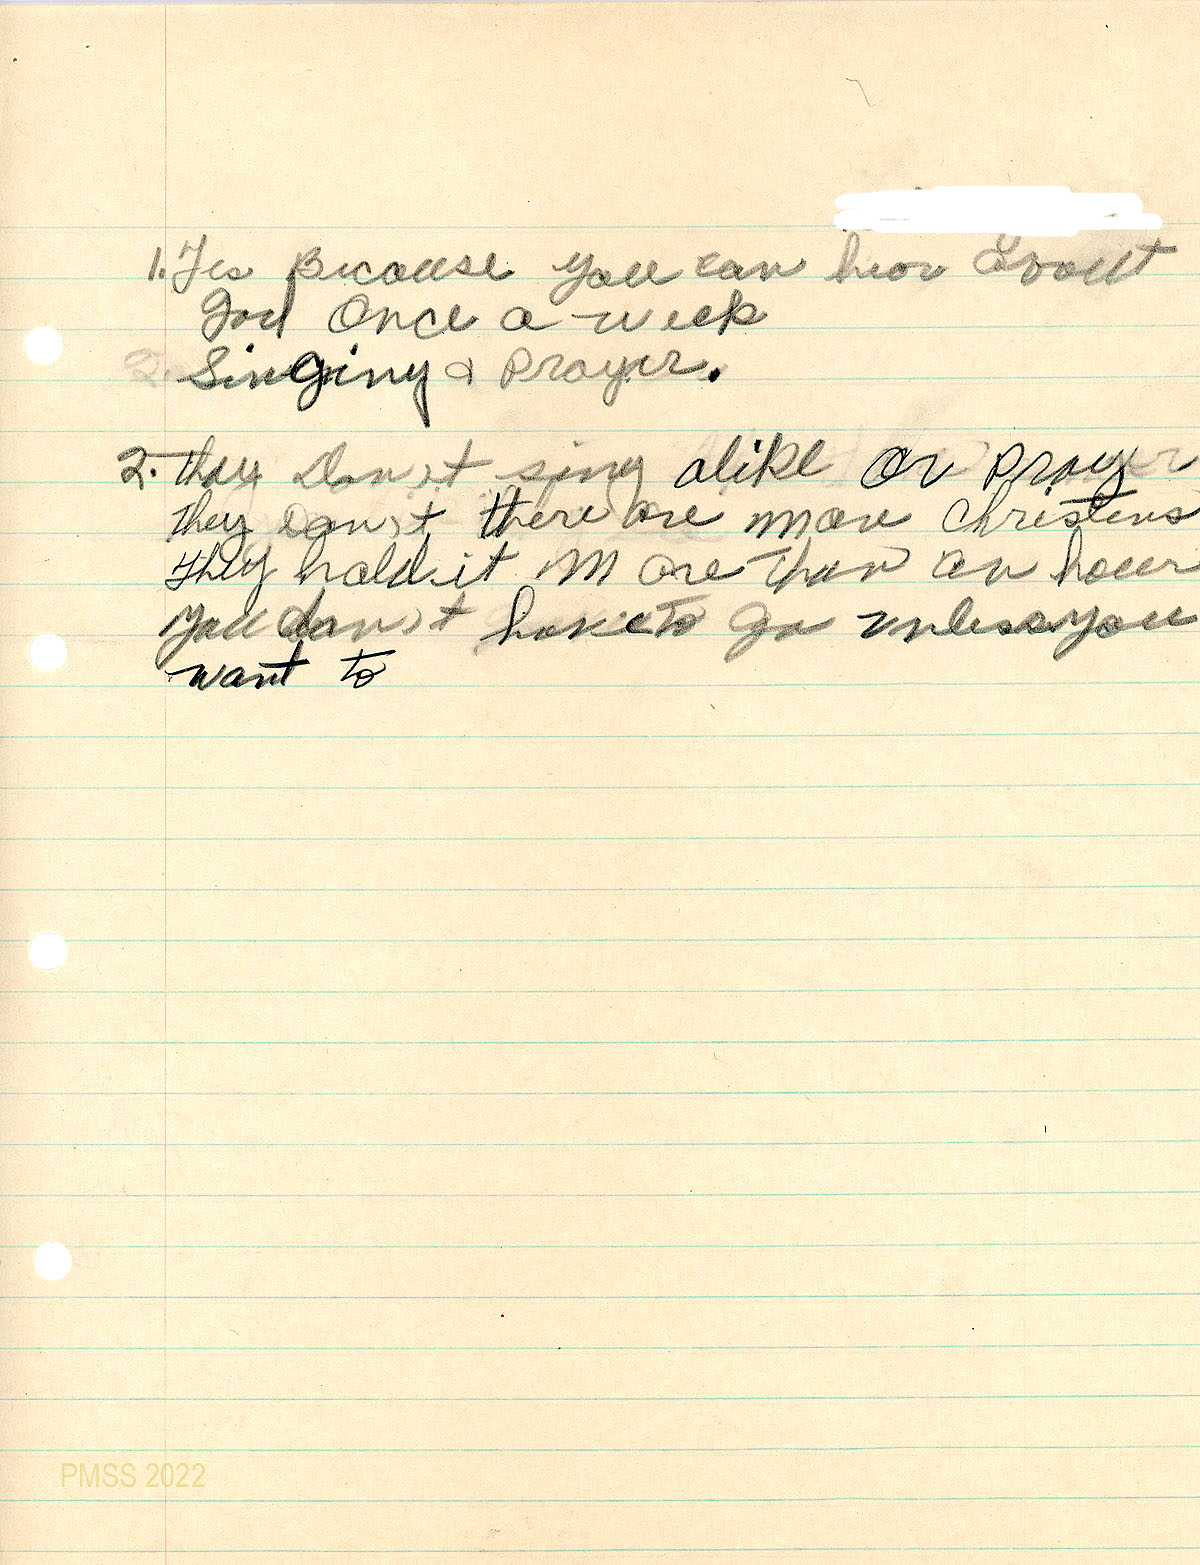 1. Yes Because you can hear about
God Once a week
2. Singing & Prayer.
2. They Don't sing alike or pray
They Don't there are more Christens
They hold it More Than an hour
You don't have to go unless you
want to
PMSS 2022